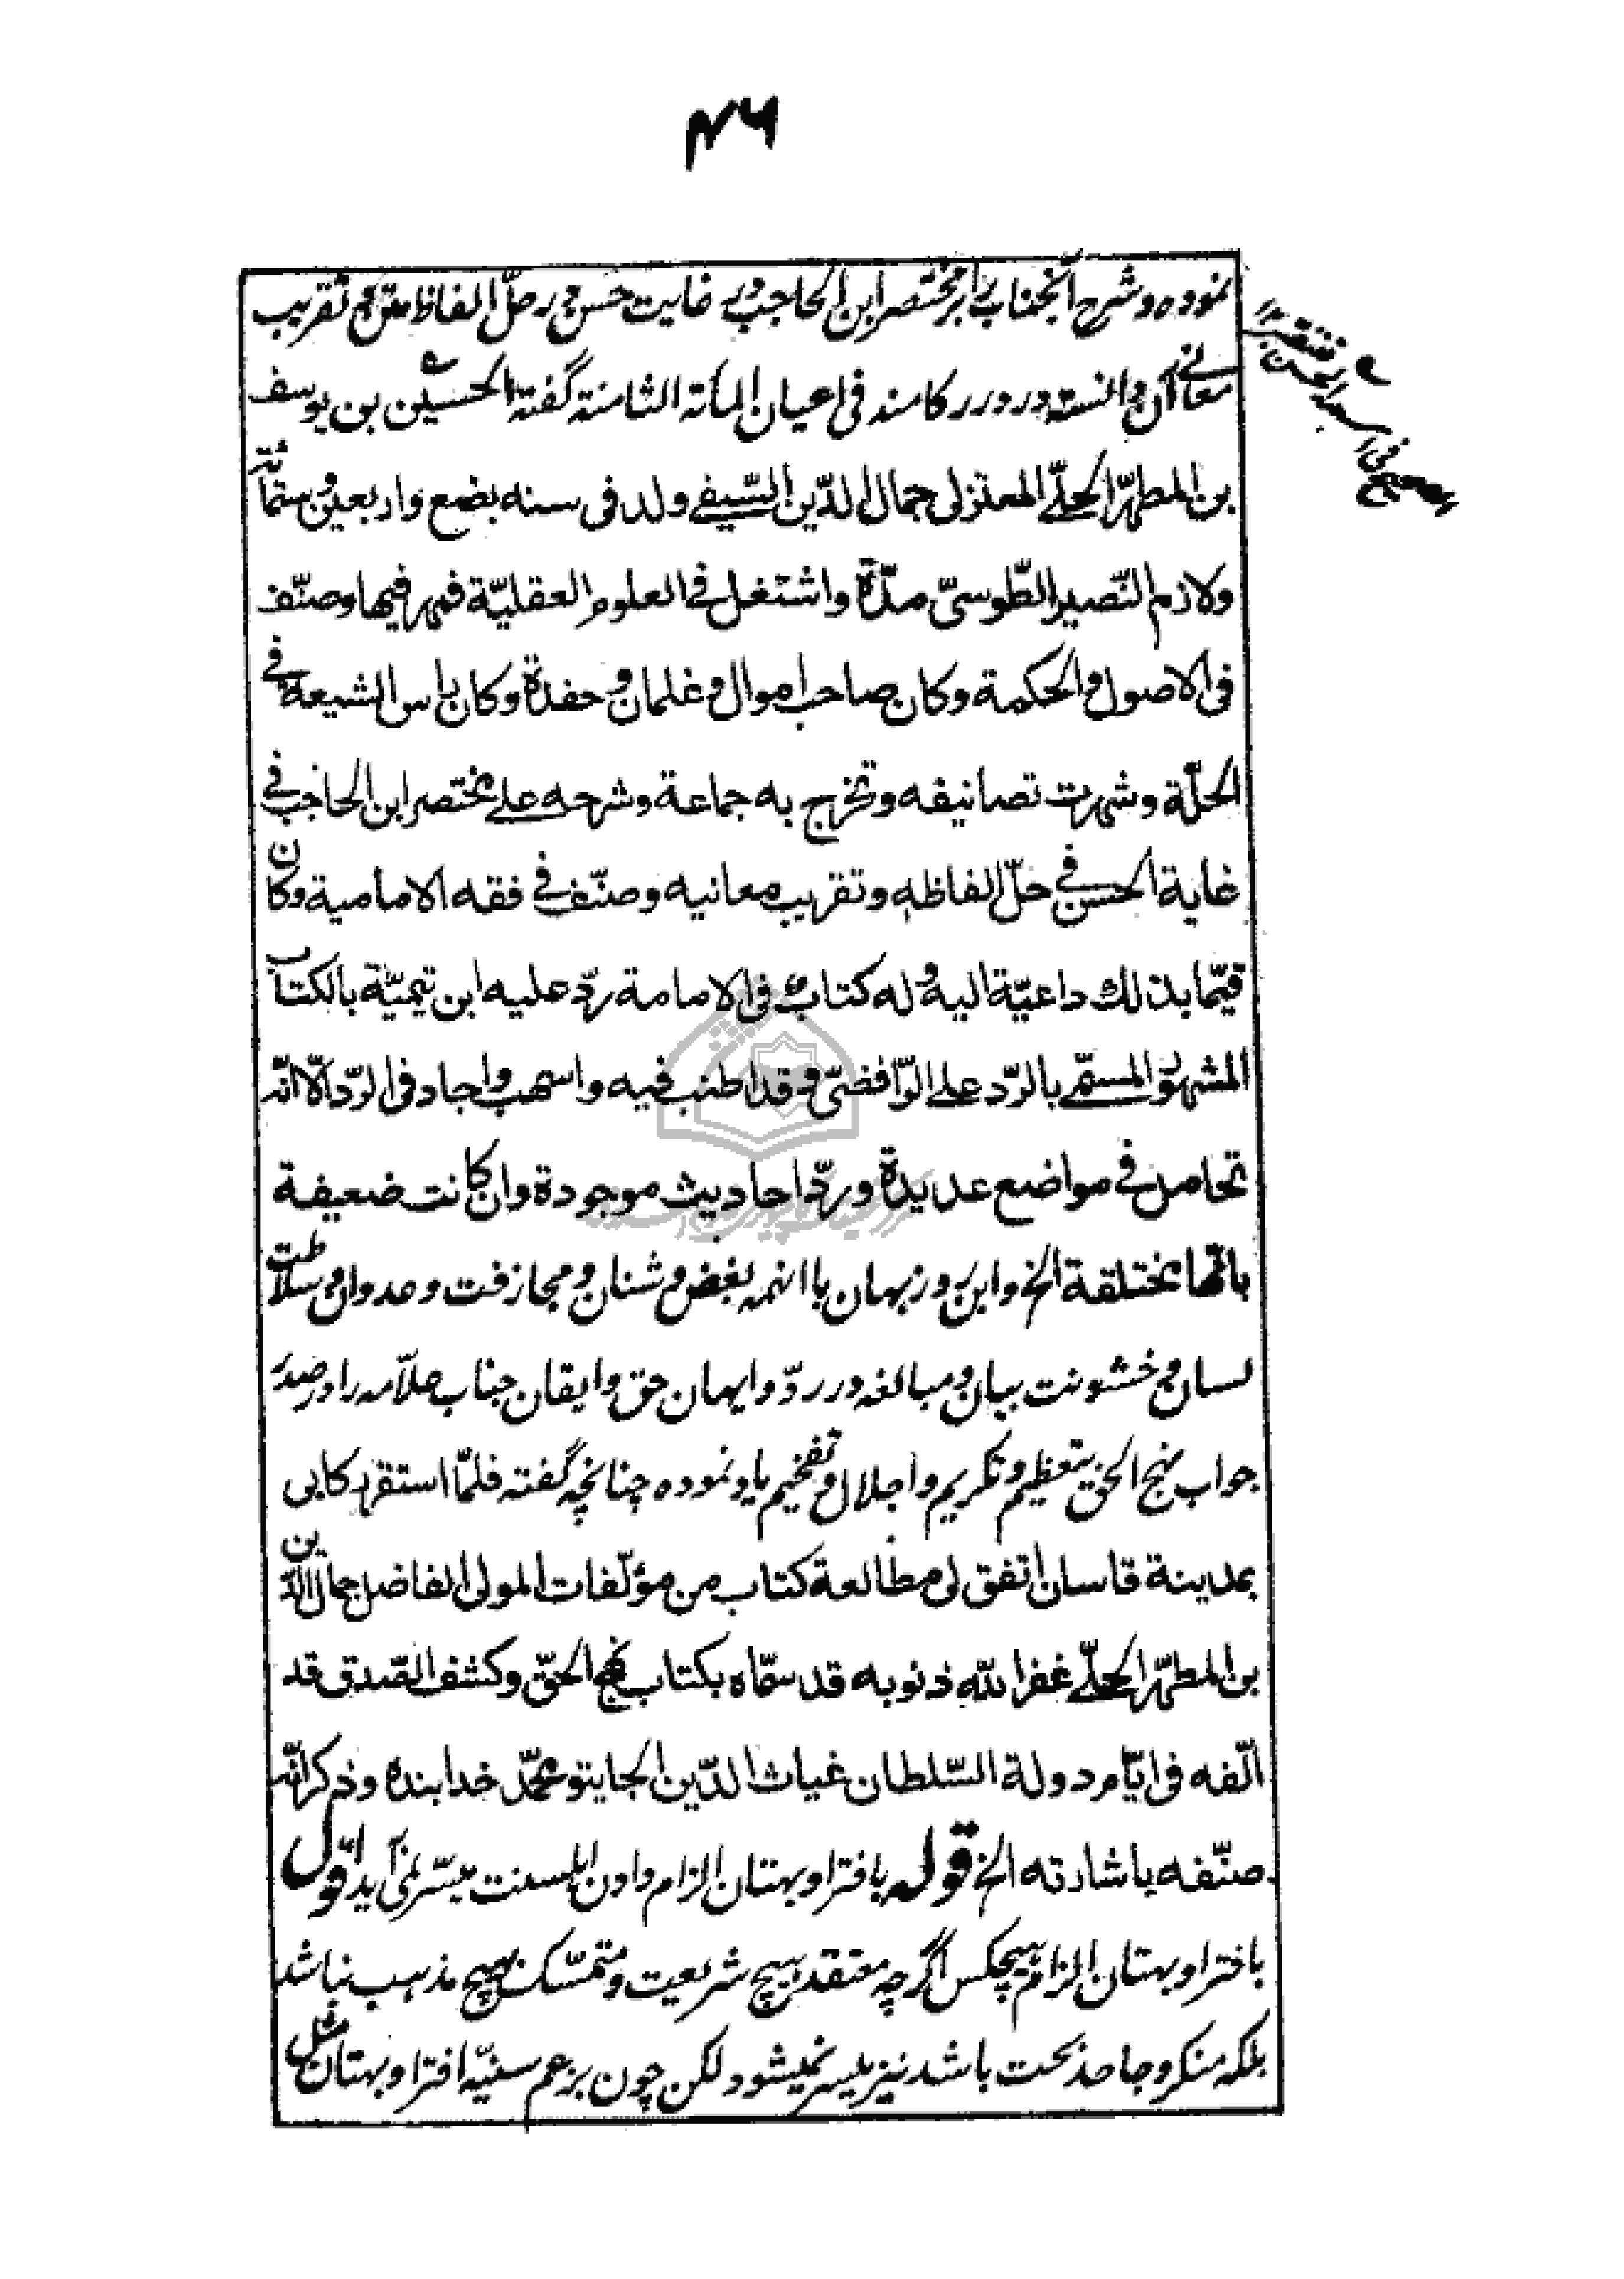 ۴۶
نموده و شرح آنجناب را بر مختصر ابن الحاجب در غایت حسن در حل الفاظ متن و تقریب
معانی آن دانسته در درر کامنه فی اعیان المأته الثامنة گفته الحسین بن یوسف
بن المطهّر الحلّی المعتزلی جمال الدّین الشیعی ولد فی سنه بضع واربعین وستمائة
ولازم النّصیر الطّوسیّ مدّة واشتغل فی العلوم العقلیّة فمهر فیها وصنّف
فی الاصول والحکمة وکان صاحب اموال وغلمان وحفدة وکان راس الشیعة فی
الحلّة وشهرت تصانیفه وتخرج به جماعة وشرحه علی مختصر ابن الحاجب فی
غایة الحسن فی حلّ الفاظه وتقریب معانیه وصنّف فی فقه الامامیة وکان
قیّما بذلك داعیّة الیه وله کتاب فی الامامة ردّ علیه ابن تیمیّة بالکتاب
المشهور المسمّی بالرّد علی الرّافضیّ وقد اطنب فیه واسهب واجاد فی الردّ الّا انّه
تحامل فی مواضع عدیدة وردّ احادیث موجودة وان کانت ضعیفة
بانّها مختلقة الخ وابن روزبهان با انهمه بغض و شنان و مجازفت و عدوان و سلاطت
لسان و خشونت بیان و مبالغه در ردّ و ایهان حق و ایقان جناب علّامه را در صدر
جواب نهج الحق بتعظیم و تکریم و اجلال و تفخیم یاد نموده چنانچه گفته فلمّا استقر رکابی
بمدینة قاسان اتفق لی مطالعة کتاب من مؤلّفات المولی الفاضل جمال الدّین
بن المطهّر الحلّی غفر الله ذنوبه قد سمّاه بکتاب نهج الحقّ وکشف الصّدق قد
الّفه فی ایّام دولة السّلطان غیاث الدّین الجایتو محمّد خدابنده وذکر انّه
صنّفه باشارته الخ قوله بافترا و بهتان الزام دادن اهلسنت میسّر نمی آید اقول
بافترا و بهتان الزام هیچکس اگرچه معتقد هیچ شریعت و متمسّک بهیچ مذهب نباشد
بلکه منکر و جاحد بحت باشد نیز میسر نمیشود لکن چون بزعم سنیّه افترا و بهتان مثل